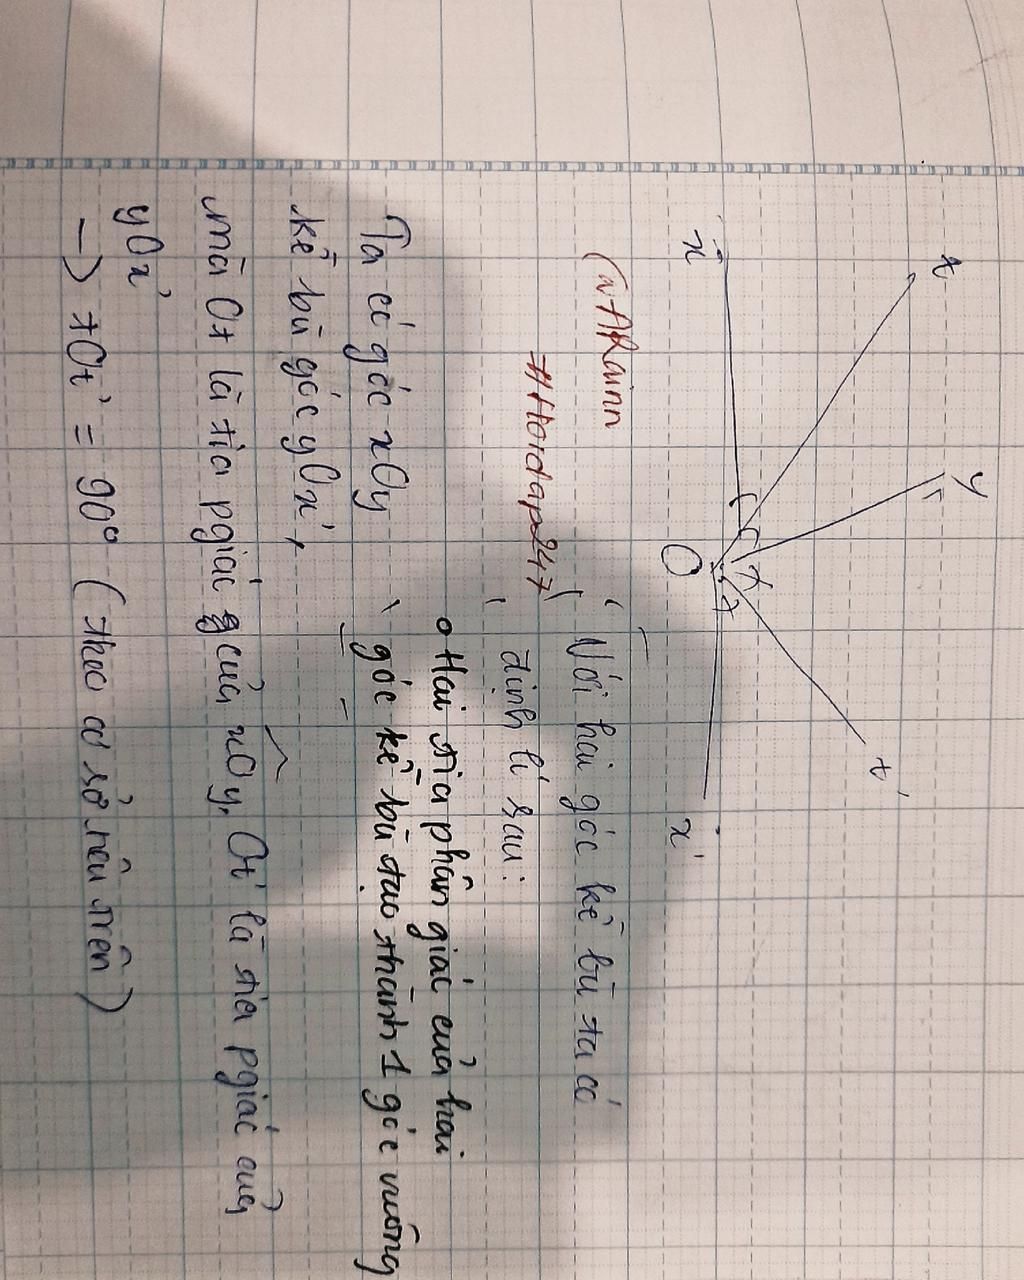 t
y
t'
x
O
x'
@ARainn
#Hoidap247
Với hai góc kề bù ta có
định lí sau:
Hai tia phân giác của hai
góc kề bù tạo thành 1 góc vuông
Ta có góc xOy
kề bù góc yOx',
mà Ot là tia pgiác của xOy, Ot' là tia pgiác của
yOx'
→ tOt' = 90° (theo cơ sở nêu trên)